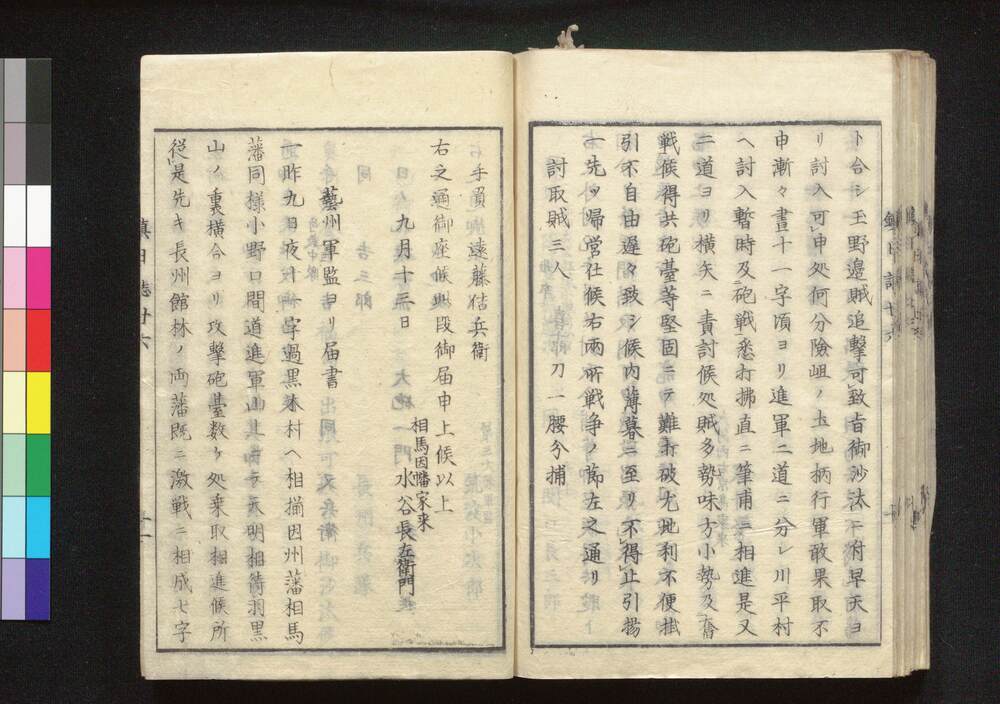 ト合シ玉野邊賊追撃可致旨御沙汰ニ附早天ヨ
リ討入可申処何分險岨ノ土地柄行軍敢果取不
申漸々晝十一字頃ヨリ進軍二道ニ分レ川平村
ヘ討入暫時及砲戦悉打拂直ニ筆甫ニ相進是又
二道ヨリ横矢ニ責討候処賊多勢味方小勢及奮
戦候得共砲臺等堅固ニテ難打破尤地利不便掛
引不自由遅々致シ候内薄暮ニ至リ不得止引揚
一先ツ帰営仕候右両所戦争ノ節左之通リ
討取賊三人 刀一腰分捕
手負 遠藤 兵衛
右之通御座候此段御届申上候以上
相馬因幡家来
九月十三日 水谷長左衛門
藝州軍監ヨリ届書
一昨九日夜十一字過黒木村ヘ相揃因州藩相馬
藩同様小野口間道進軍山 ニテ天明相待羽黒
山ノ裏横合ヨリ攻撃砲臺数ケ処乗取相進候所
従是先キ長州館林ノ両藩既ニ激戦ニ相成七字
鎮日誌廿六